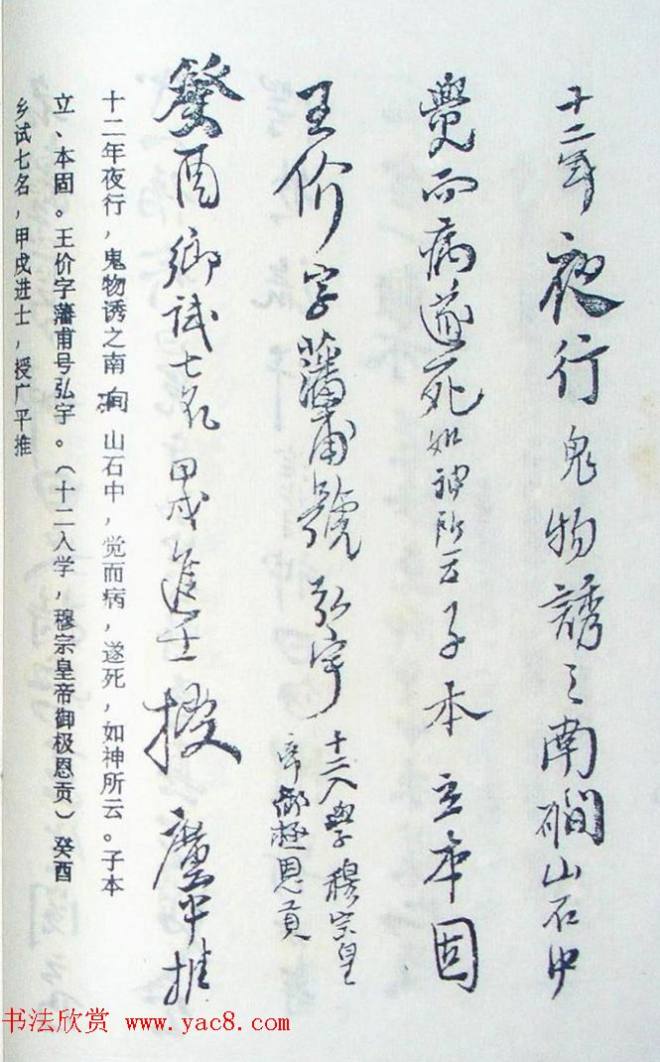 十二年夜行鬼物誘之南磵山石中
覺而病遂死如神所云子本立本固
王价字藩甫號弘宇十二入學穆宗皇
帝御極恩貢
癸酉鄉試七名甲戌進士授廣平推
十二年夜行，鬼物诱之南 磵 山石中，觉而病，遂死，如神所云。子本
立、本固。王价字藩甫号弘宇。（十二入学，穆宗皇帝御极恩贡）癸酉
乡试七名，甲戌进士，授广平推
书法欣赏 www.yac8.com